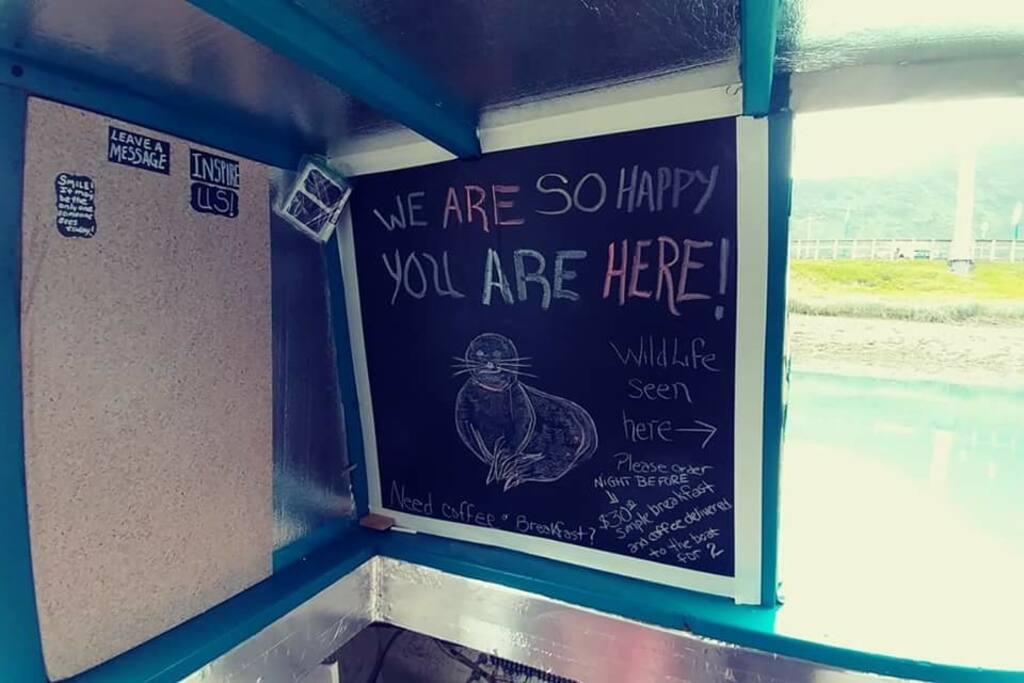 LEAVE A
MESSAGE
INSPIRE
US!
SMILE!
It may
be the
only one
someone
sees
today!
WE ARE SO HAPPY
YOU ARE HERE!
WildLife
seen
here →
Please order
NIGHT BEFORE
$30
simple breakfast
and coffee delivered
to the boat
for 2
Need coffee Breakfast?